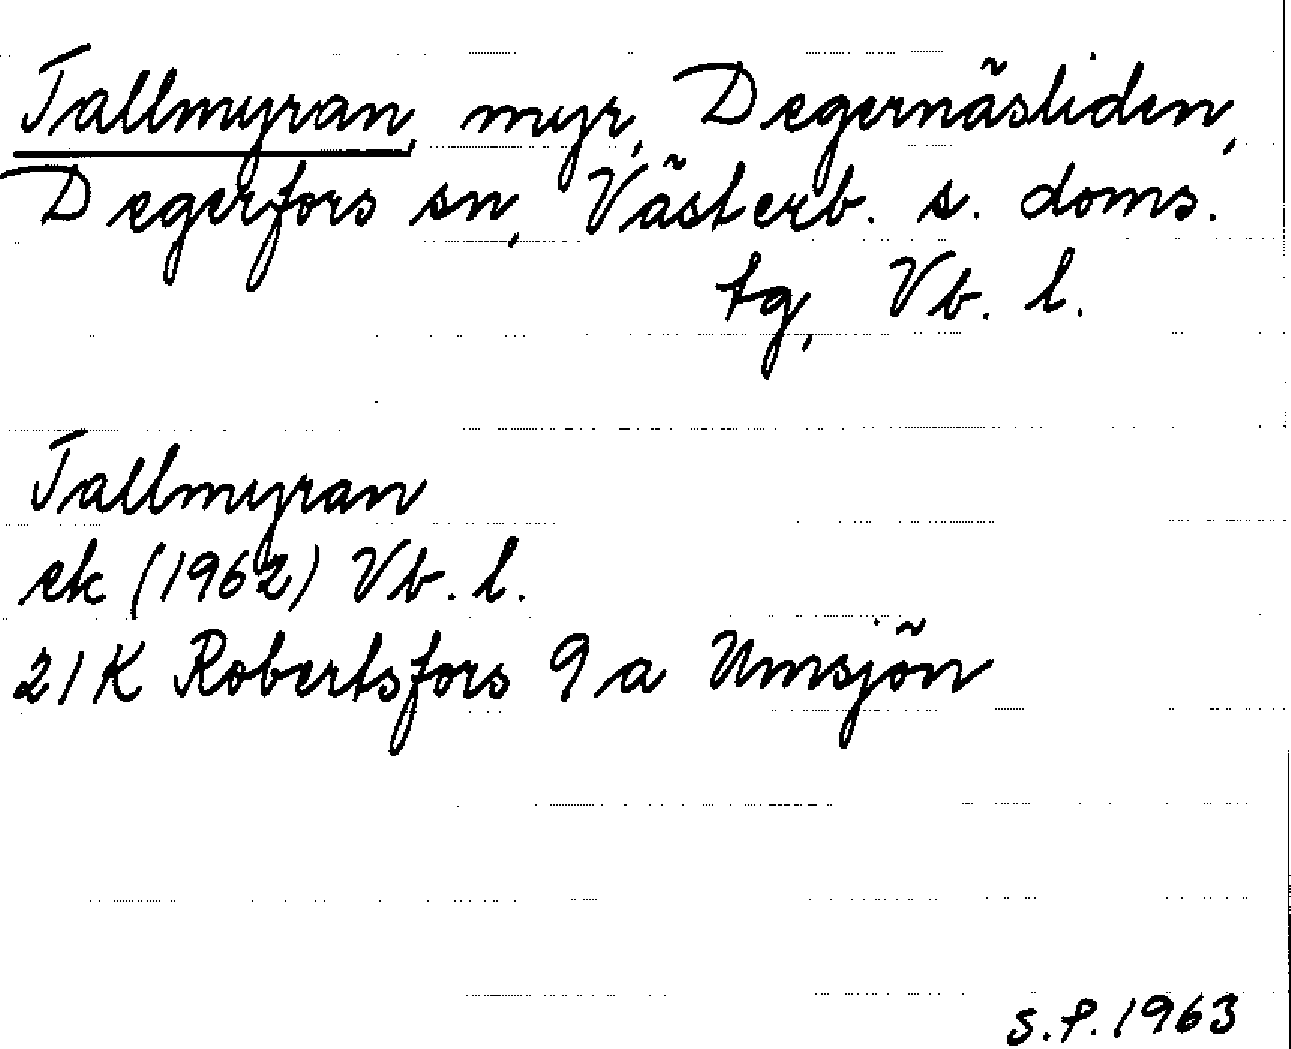 Tallmyran, myr, Degernäsliden,
Degerfors sn, Västerb. s. doms.
tg, Vb. l.
Tallmyran
ek (1962) Vb. l.
21K Robertsfors 9a Umsjön
S.P. 1963